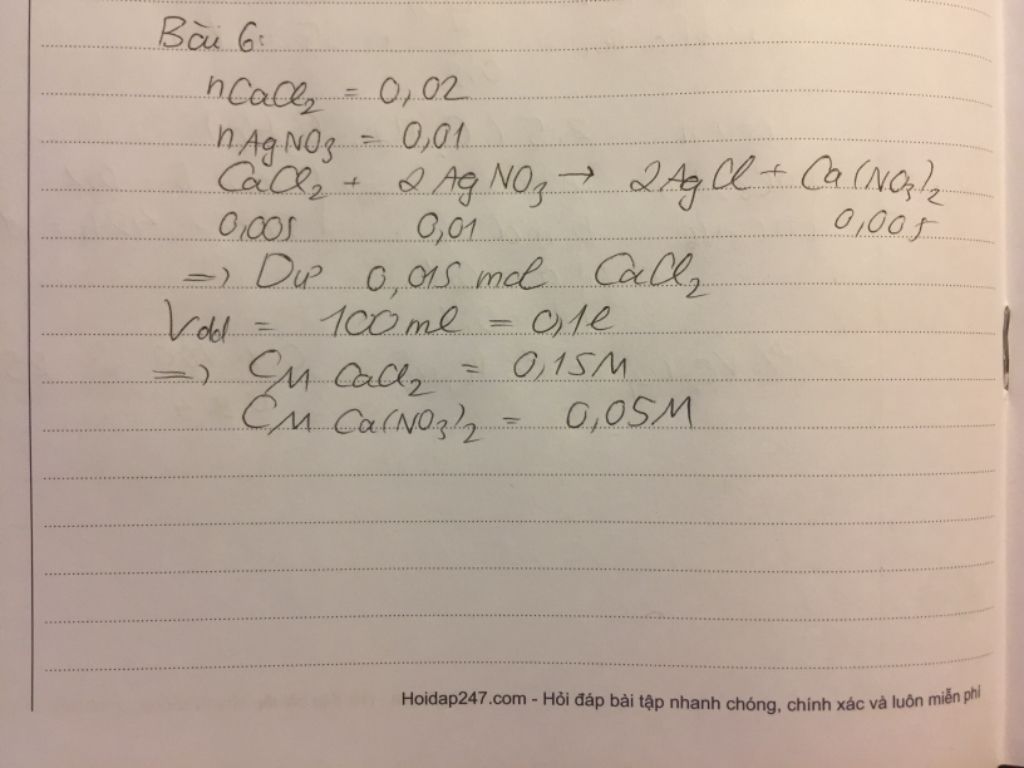 Bài 6:
nCaCl2 = 0,02
nAgNO3 = 0,01
CaCl2 + 2AgNO3 → 2AgCl + Ca(NO3)2
0,005 0,01 0,005
=> Dư 0,015 mol CaCl2
Vdd = 100ml = 0,1l
=> CM CaCl2 = 0,15M
CM Ca(NO3)2 = 0,05M
Hoidap247.com - Hỏi đáp bài tập nhanh chóng, chính xác và luôn miễn phí